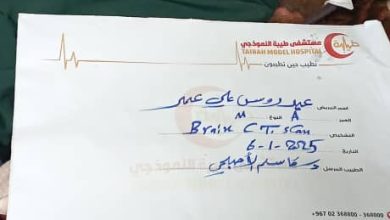 طيبة
مستشفى طيبة النموذجي
TAIBAH MODEL HOSPITAL
نطبب حين تطيبون
اسم المريض عيدروس علي عمر
العمر A النوع M
التشخيص Brain CT. scan
التاريخ 6-1-2025
الطبيب المرسل د قاسم الأصبحي
+967 02 368800 - 368808